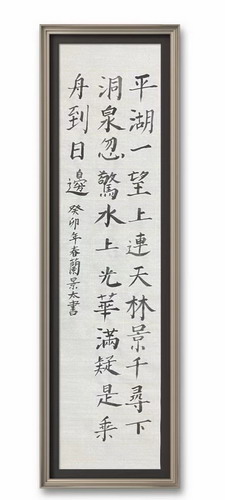 平湖一望上連天林景千尋下
洞泉忽驚水上光華滿疑是乘
舟到日邊癸卯年春蘭景太書